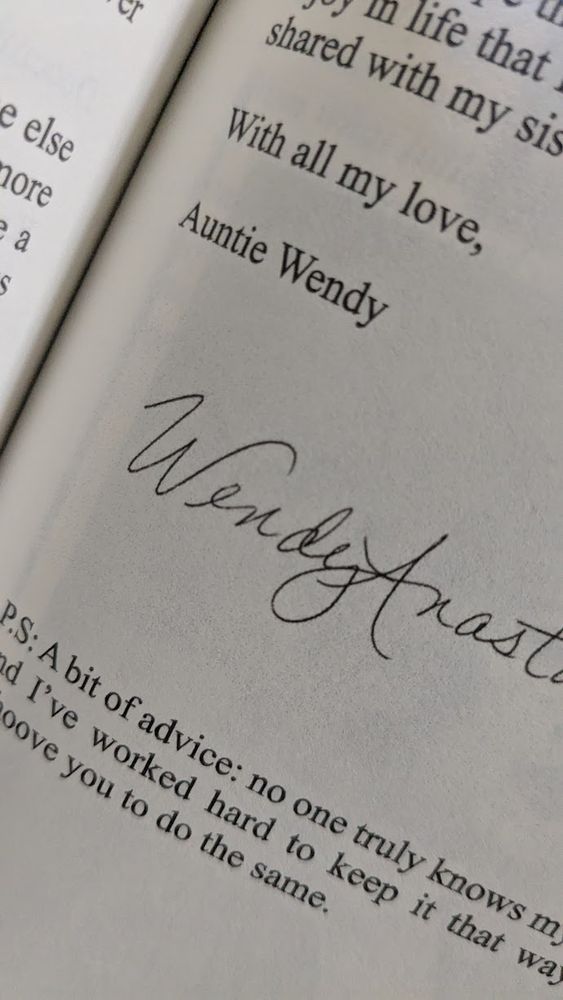 er
e else
more
e a
s
joy in life that I
shared with my sis
With all my love,
Auntie Wendy
Wendy Anasta
P.S: A bit of advice: no one truly knows my
nd I've worked hard to keep it that way
hoove you to do the same.